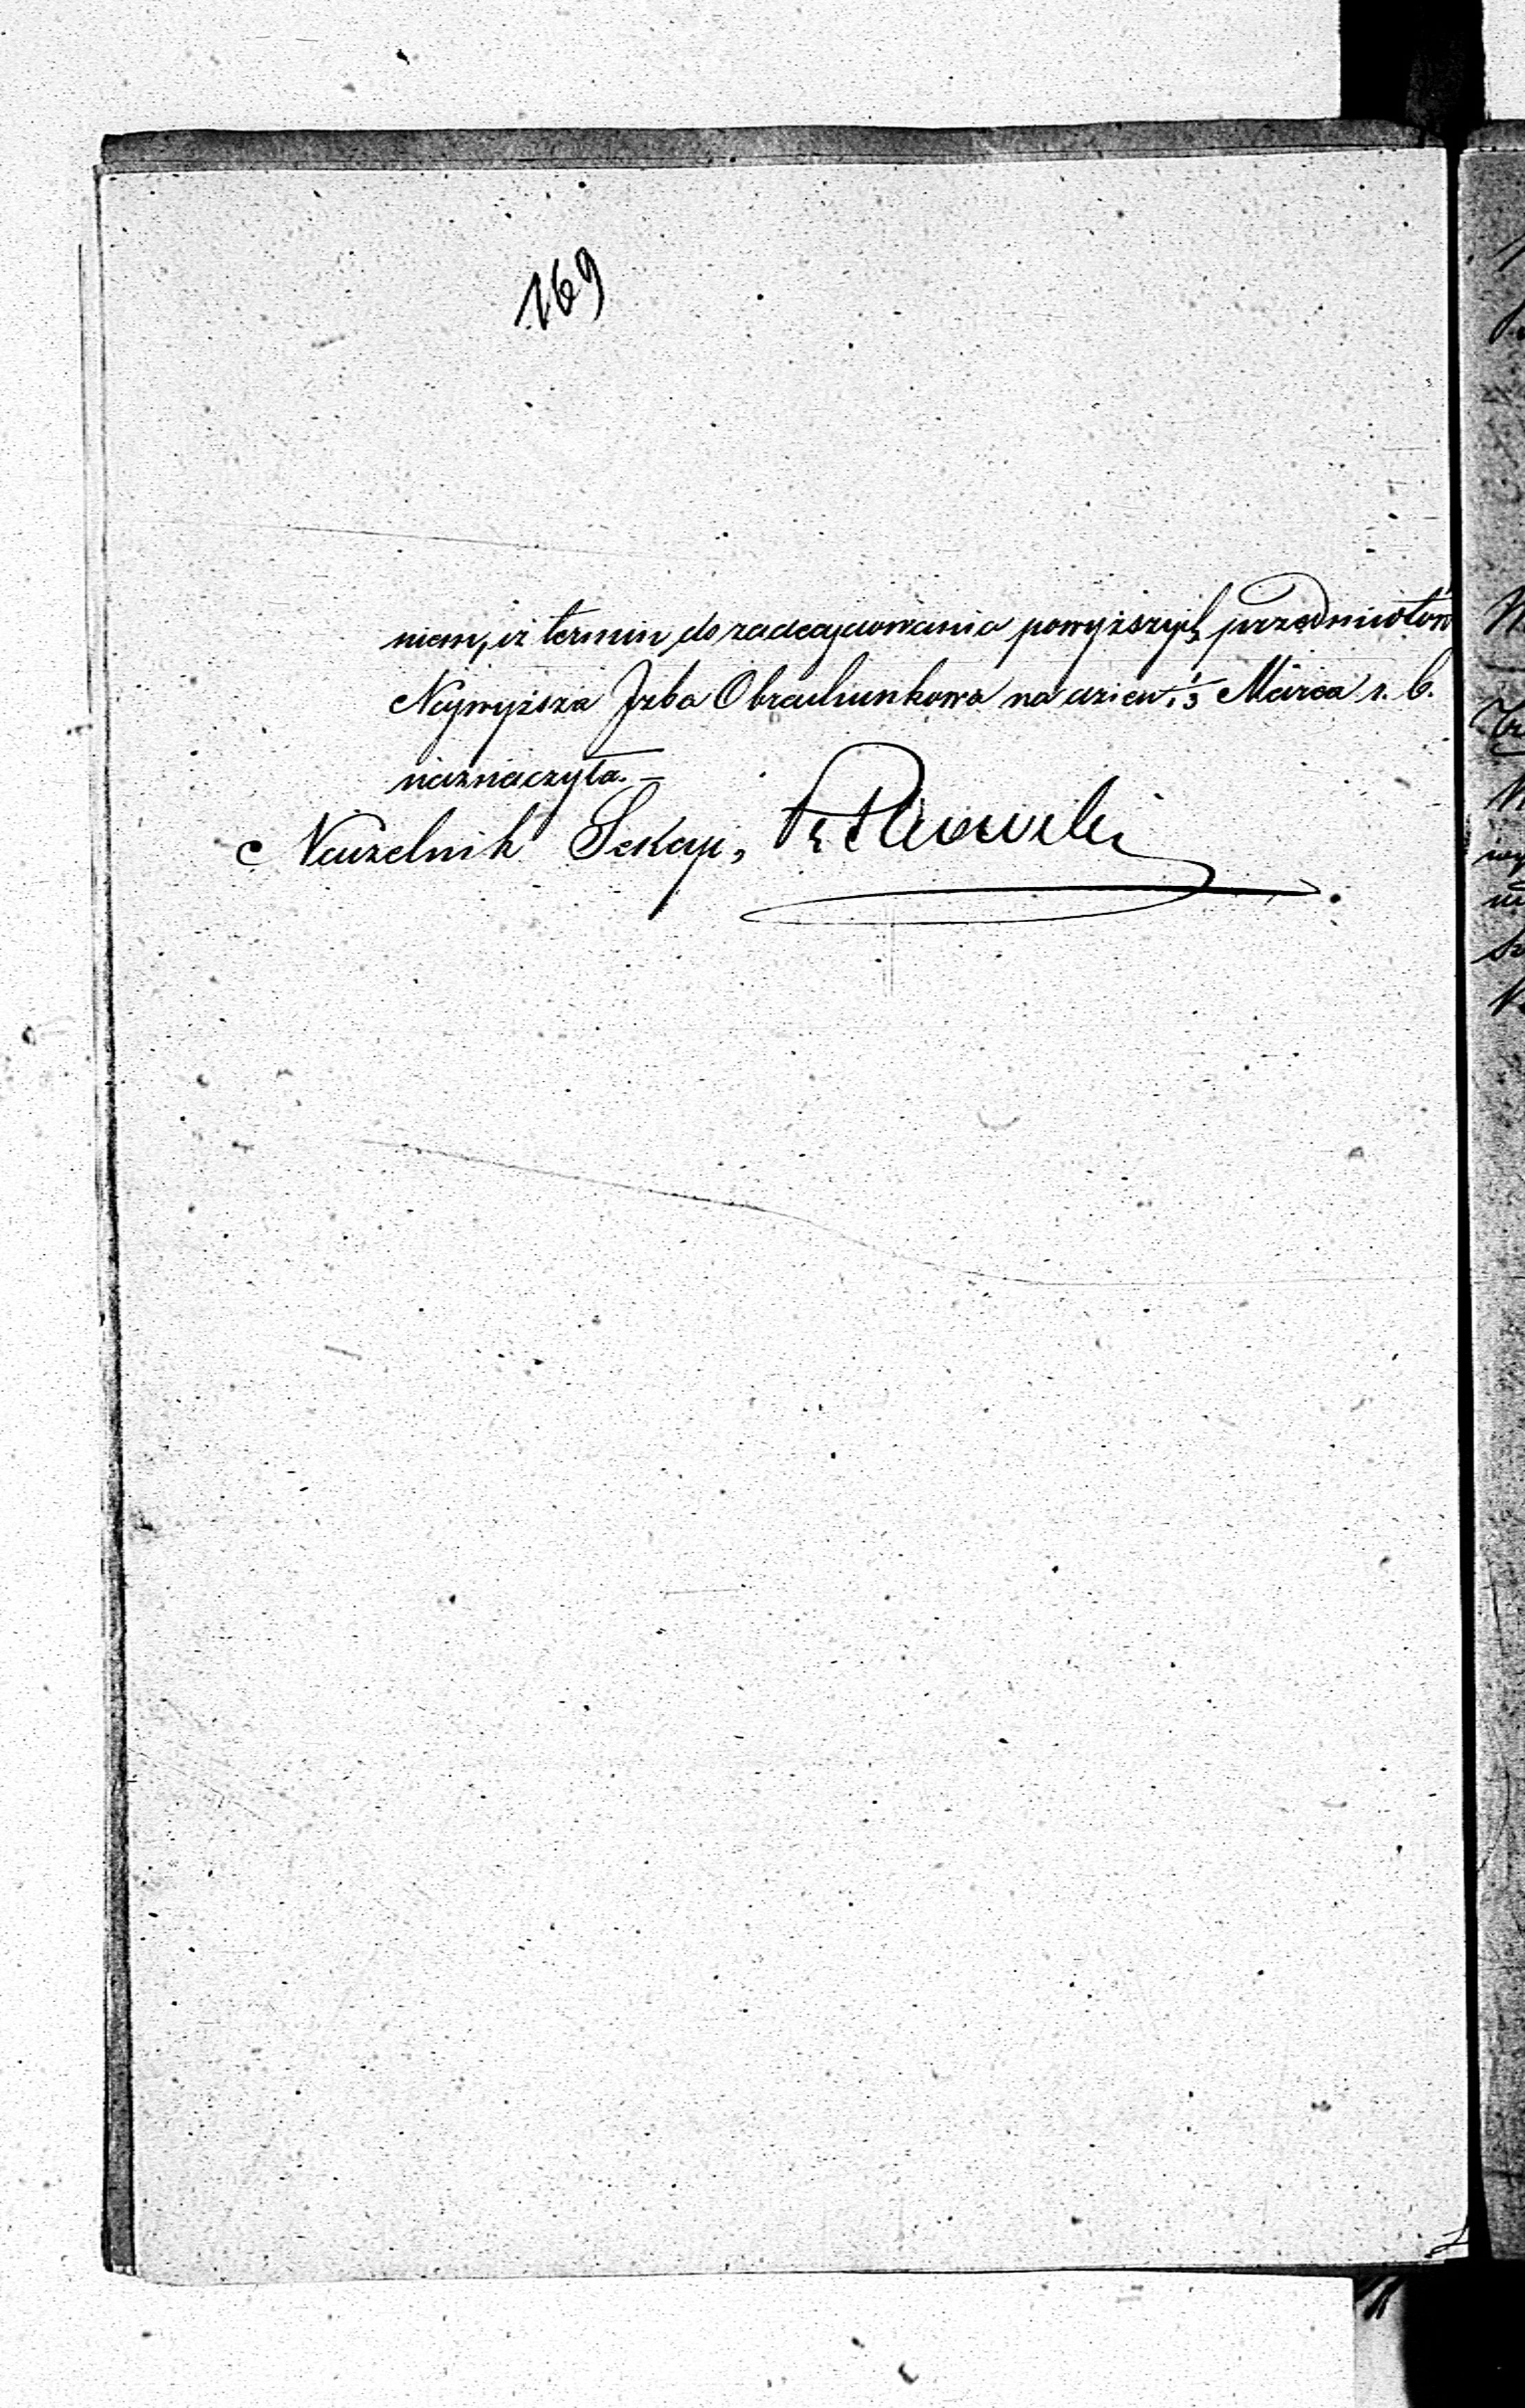 169
niem, iż termin do zadecydowania powyższych przedmiotów
Najwyższa Jzba Obrachunkowa na dzień 1/13 Marca r. b.
naznaczyła. –
Naczelnik Sekcyi,